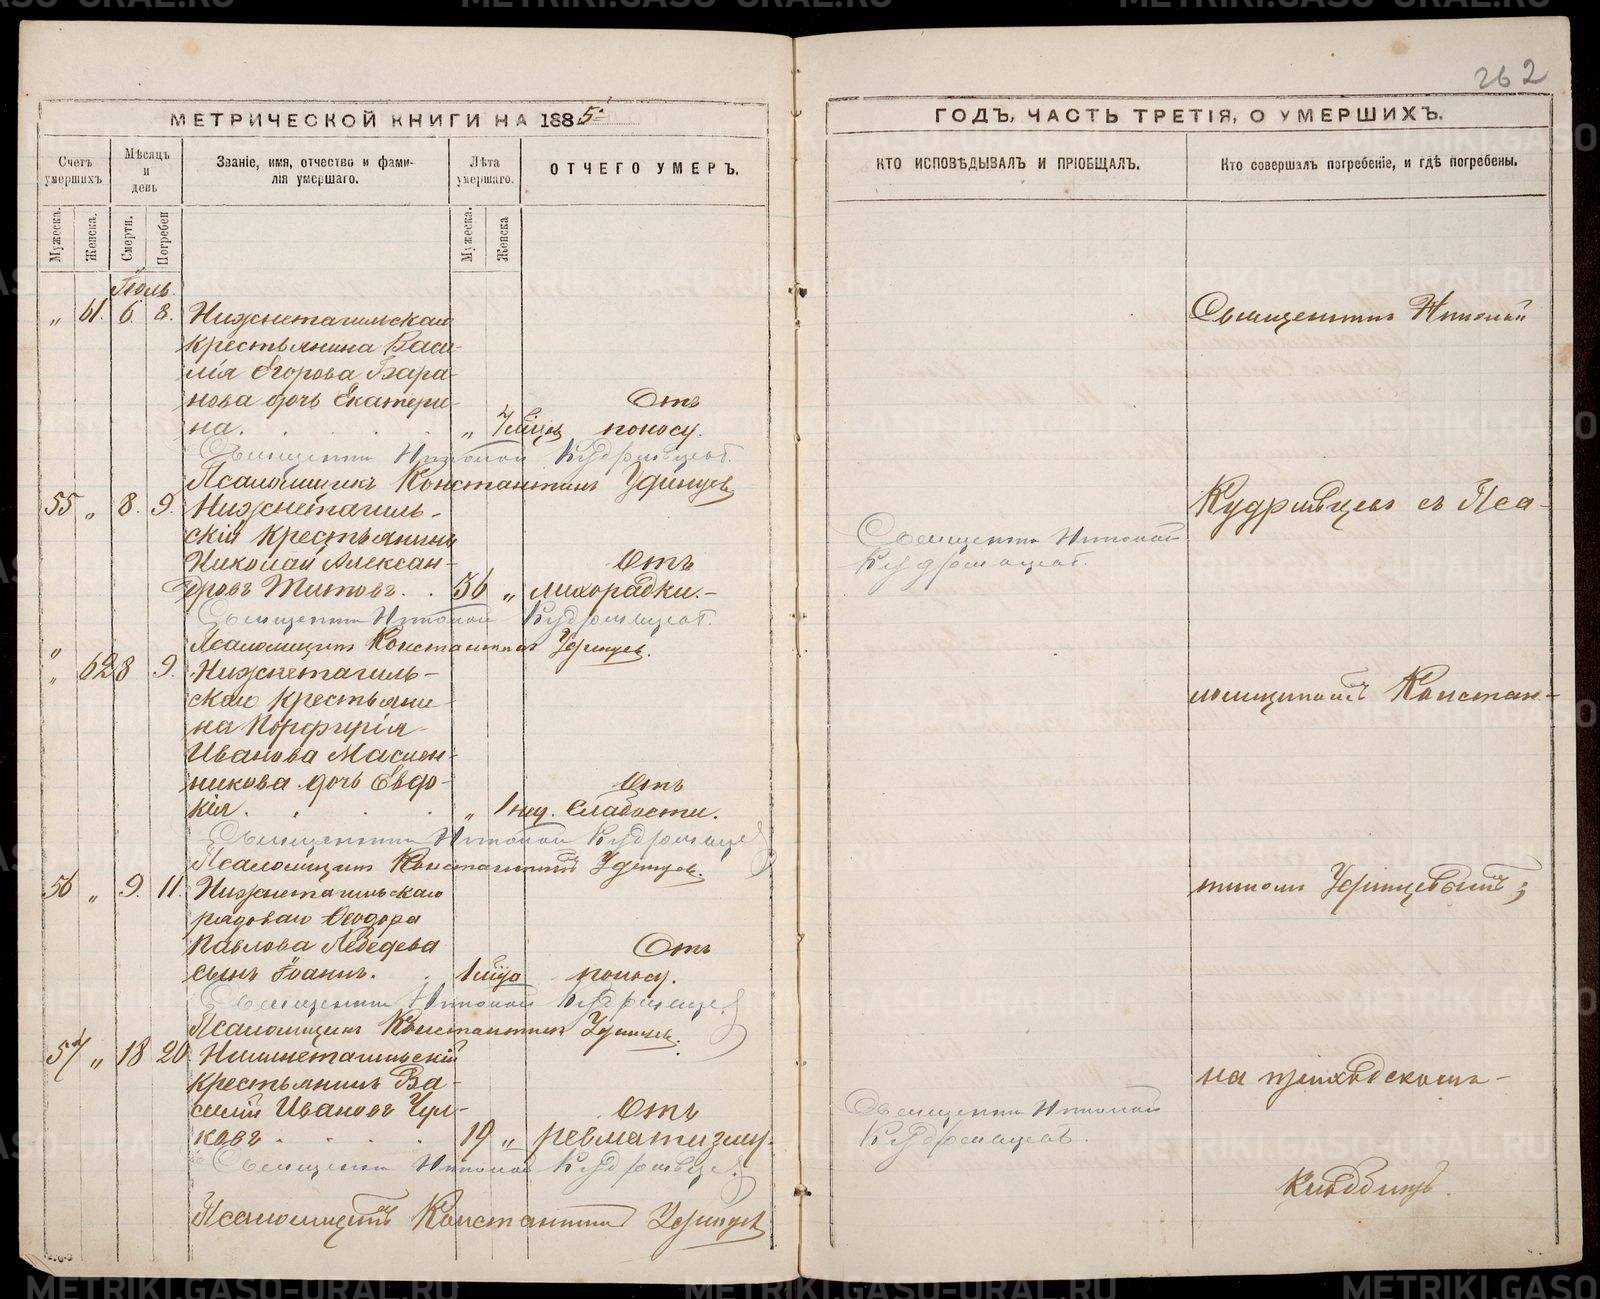 262
МЕТРИЧЕСКОЙ КНИГИ НА 1885
Счетъ умершихъ
Мѣсяцъ и день
Званіе, имя, отчество и фами-
лія умершаго.
Лѣта умершаго.
ОТЧЕГО УМЕРЪ.
Мужеска.
Женска.
Смерти.
Погребен
Мужеска.
Женска
Іюль.
„ 61. 6. 8. Нижнетагильскаго
крестьянина Васи-
лія Егорова Бара-
нова дочь Екатери- Отъ
на. „ 7 мѣсц поносу.
Священникъ Николай Кудрявцевъ.
Псаломщикъ Константинъ Удинцевъ
55 „ 8. 9. Нижнетагиль-
скій крестьянинъ
Николай Алексан- Отъ
дровъ Титовъ. 56 „ лихорадки.-
Священникъ Николай Кудрявцевъ.
Псаломщикъ Константинъ Удинцевъ.
„ 62 8 9. Нижнетагиль-
скаго крестьяни-
на Порфирія
Иванова Маслен-
никова дочь Евдо- Отъ
кія. „ 1 нед. слабости.
Священникъ Николай Кудрявцевъ
Псаломщикъ Константинъ Удинцевъ.
56 „ 9. 11. Нижнетагильскаго
рядоваго Ѳеодора
Павлова Лебедева Отъ
сынъ Іоаннъ. 1 мѣсц поносу.
Священникъ Николай Кудрявцевъ
Псаломщикъ Константинъ Удинцевъ.
57 „ 18 20 Нижнетагильскій
крестьянинъ Ва-
силій Ивановъ Чул- Отъ
ковъ. 19 „ ревматизму.
Священникъ Николай Кудрявцевъ
Псаломщикъ Константинъ Удинцевъ
ГОДЪ, ЧАСТЬ ТРЕТІЯ, О УМЕРШИХЪ.
КТО ИСПОВѢДЫВАЛЪ И ПРІОБЩАЛЪ.
Кто совершалъ погребеніе, и гдѣ погребены.
Священникъ Николай
Кудрявцевъ съ Пса-
Священникъ Николай
Кудрявцевъ.
ломщикомъ Констан-
тиномъ Удинцевымъ;
на приходскомъ
Священникъ Николай
Кудрявцевъ.
кладбищѣ.
METRIKI.GASO-URAL.RU